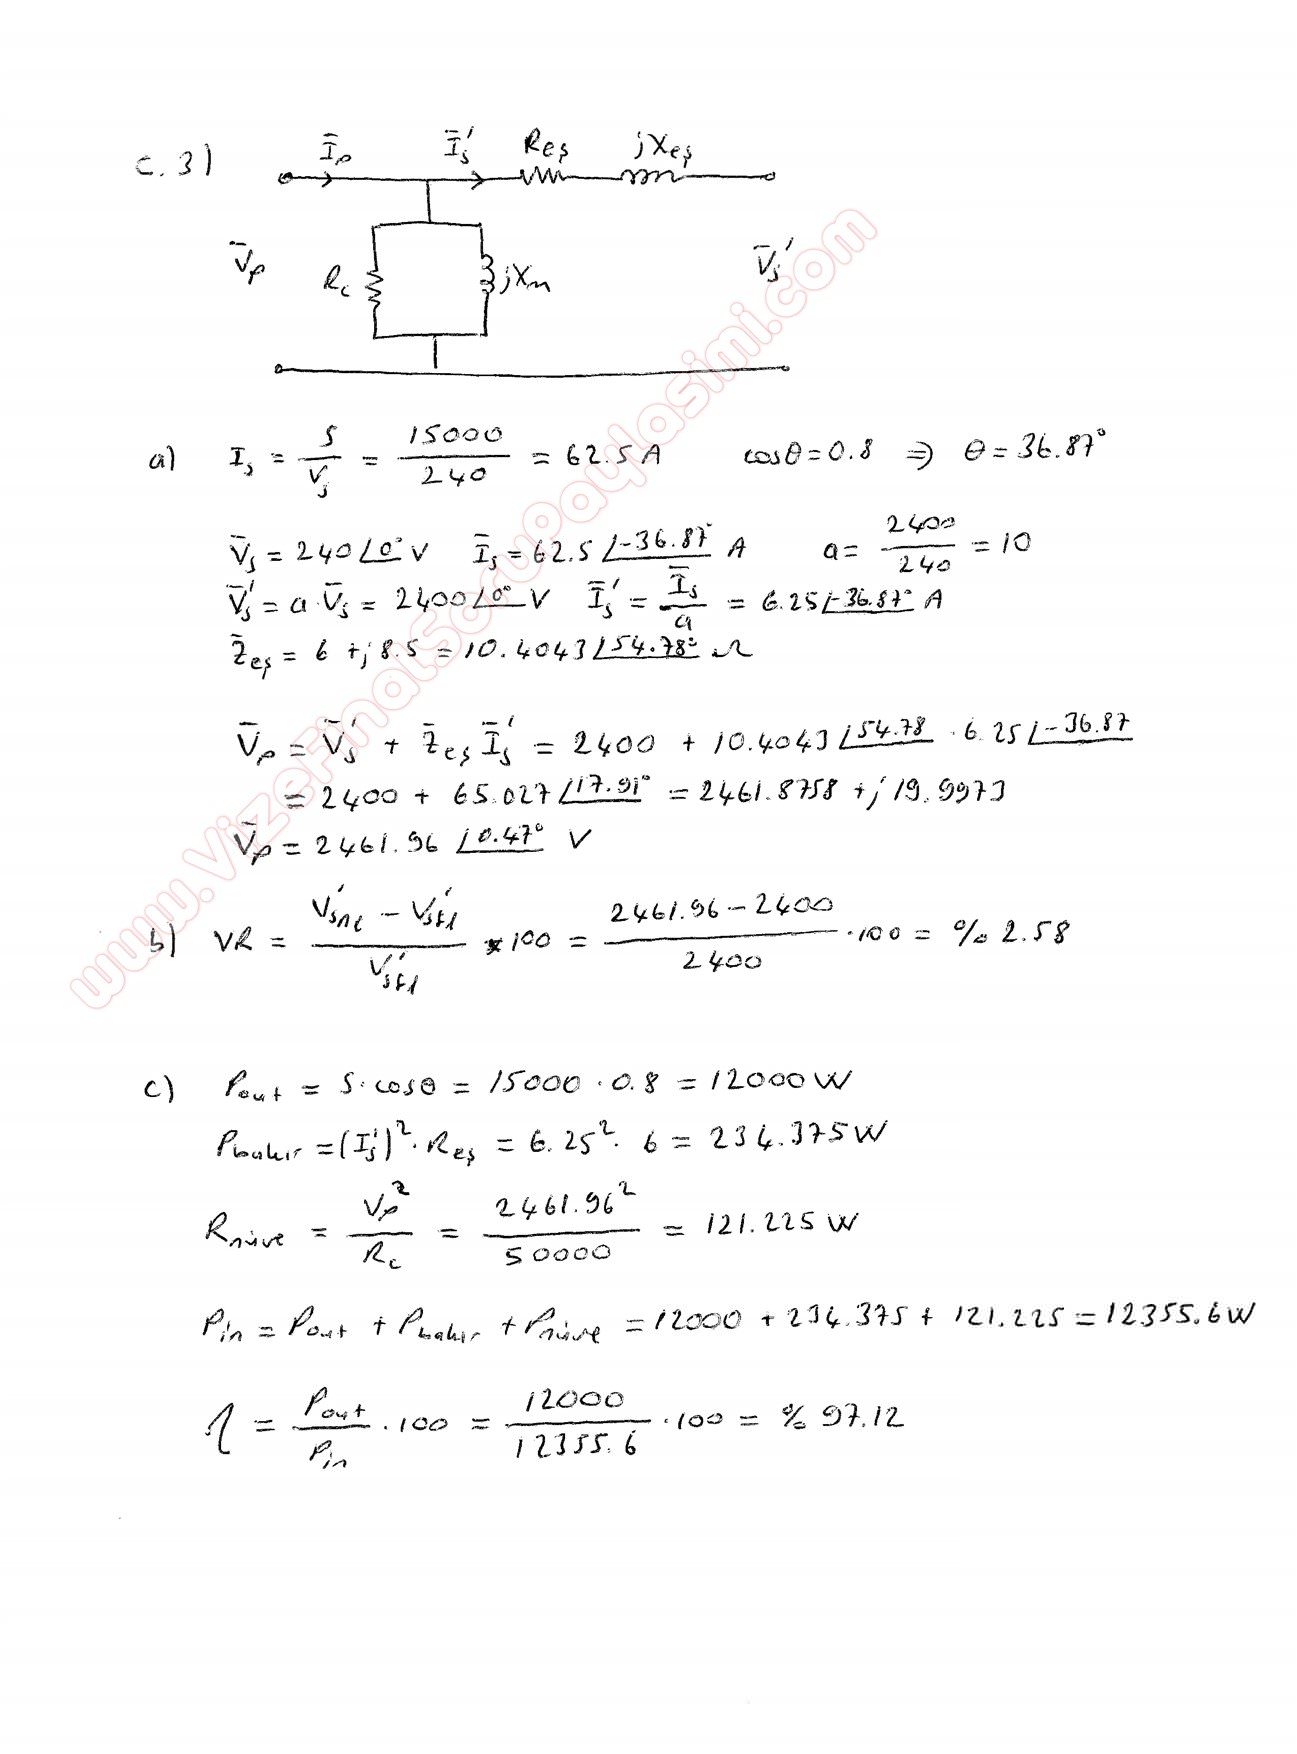 C.3)
I̅p I̅s' Reş jXeş
V̅p Rc jXm V̅s'
a) Is = S/Vs = 15000/240 = 62.5 A cosθ = 0.8 ⇒ θ = 36.87°
V̅s = 240∠0° V I̅s = 62.5∠-36.87° A a = 2400/240 = 10
V̅s' = a·V̅s = 2400∠0° V I̅s' = I̅s/a = 6.25∠-36.87° A
Z̅eş = 6 + j8.5 = 10.4043∠54.78° Ω
V̅p = V̅s' + Z̅eş I̅s' = 2400 + 10.4043∠54.78 · 6.25∠-36.87
= 2400 + 65.027∠17.91° = 2461.8758 + j19.9973
V̅p = 2461.96∠0.47° V
b) VR = (Vsnl' - Vsfl')/Vsfl' * 100 = (2461.96 - 2400)/2400 · 100 = %2.58
c) Pout = S·cosθ = 15000·0.8 = 12000 W
Pbakır = (Is')²·Reş = 6.25²·6 = 234.375 W
Pnüve = Vp²/Rc = 2461.96²/50000 = 121.225 W
Pin = Pout + Pbakır + Pnüve = 12000 + 234.375 + 121.225 = 12355.6 W
η = Pout/Pin · 100 = 12000/12355.6 · 100 = %97.12
www.VizeFinalSoruPaylasimi.com